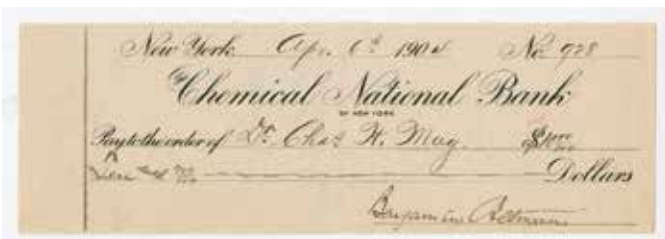 New York Apr. 6th 1904 No. 928
The Chemical National Bank
OF NEW YORK
Pay to the order of Dr. Chas H. May $10 00/100
Ten and 00/100 Dollars
Benjamin Altman